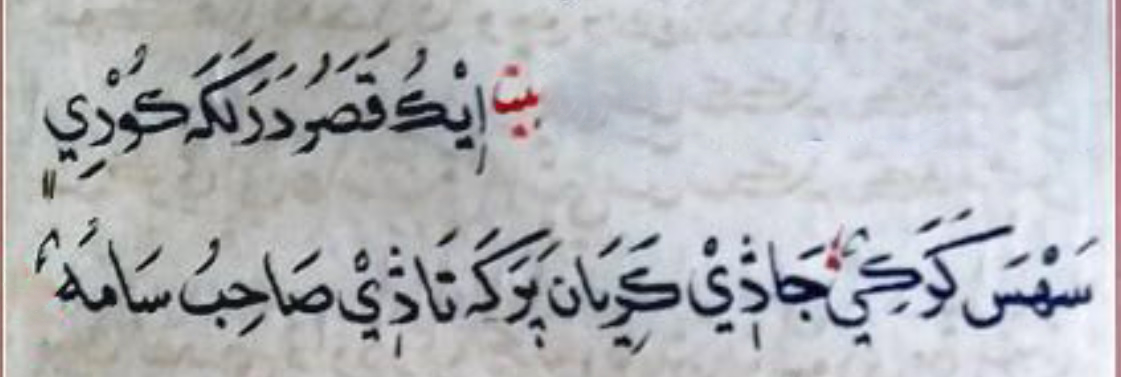 بيت اِيْكُ قَصَرُ دَرَلَكَہ كُوْرِيِ
سَهْسَ كَرَكِئ جَاذِيْ كَرِيَان پَرَكَہ تَاذِيْ صَاحِبُ سَامُهٗ